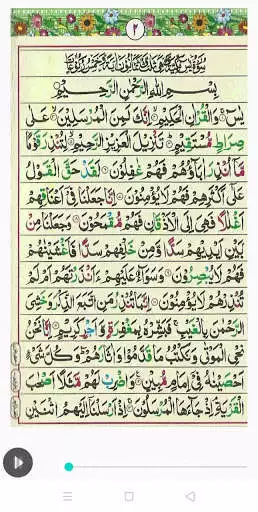 ٢
بِسْمِ اللّٰهِ الرَّحْمٰنِ الرَّحِيْمِ
يٰسٓ ۚ وَالْقُرْاٰنِ الْحَكِيْمِ ۙ اِنَّكَ لَمِنَ الْمُرْسَلِيْنَ ۙ عَلٰى
صِرَاطٍ مُّسْتَقِيْمٍ ؕ تَنْزِيْلَ الْعَزِيْزِ الرَّحِيْمِ ۙ لِتُنْذِرَ قَوْمًا
مَّاۤ اُنْذِرَ اٰبَآؤُهُمْ فَهُمْ غٰفِلُوْنَ ۞ لَقَدْ حَقَّ الْقَوْلُ
عَلٰۤى اَكْثَرِهِمْ فَهُمْ لَا يُؤْمِنُوْنَ ۞ اِنَّا جَعَلْنَا فِيْۤ اَعْنَاقِهِمْ
اَغْلٰلًا فَهِيَ اِلَى الْاَذْقَانِ فَهُمْ مُّقْمَحُوْنَ ۞ وَجَعَلْنَا مِنْۢ
بَيْنِ اَيْدِيْهِمْ سَدًّا وَّمِنْ خَلْفِهِمْ سَدًّا فَاَغْشَيْنٰهُمْ
فَهُمْ لَا يُبْصِرُوْنَ ۞ وَسَوَآءٌ عَلَيْهِمْ ءَاَنْذَرْتَهُمْ اَمْ لَمْ
تُنْذِرْهُمْ لَا يُؤْمِنُوْنَ ۞ اِنَّمَا تُنْذِرُ مَنِ اتَّبَعَ الذِّكْرَ وَخَشِيَ
الرَّحْمٰنَ بِالْغَيْبِ ۚ فَبَشِّرْهُ بِمَغْفِرَةٍ وَّاَجْرٍ كَرِيْمٍ ۞ اِنَّا نَحْنُ
نُحْيِ الْمَوْتٰى وَنَكْتُبُ مَا قَدَّمُوْا وَاٰثَارَهُمْ ؕ وَكُلَّ شَيْءٍ
اَحْصَيْنٰهُ فِيْۤ اِمَامٍ مُّبِيْنٍ ۞ وَاضْرِبْ لَهُمْ مَّثَلًا اَصْحٰبَ
الْقَرْيَةِ ۘ اِذْ جَآءَهَا الْمُرْسَلُوْنَ ۞ اِذْ اَرْسَلْنَاۤ اِلَيْهِمُ اثْنَيْنِ